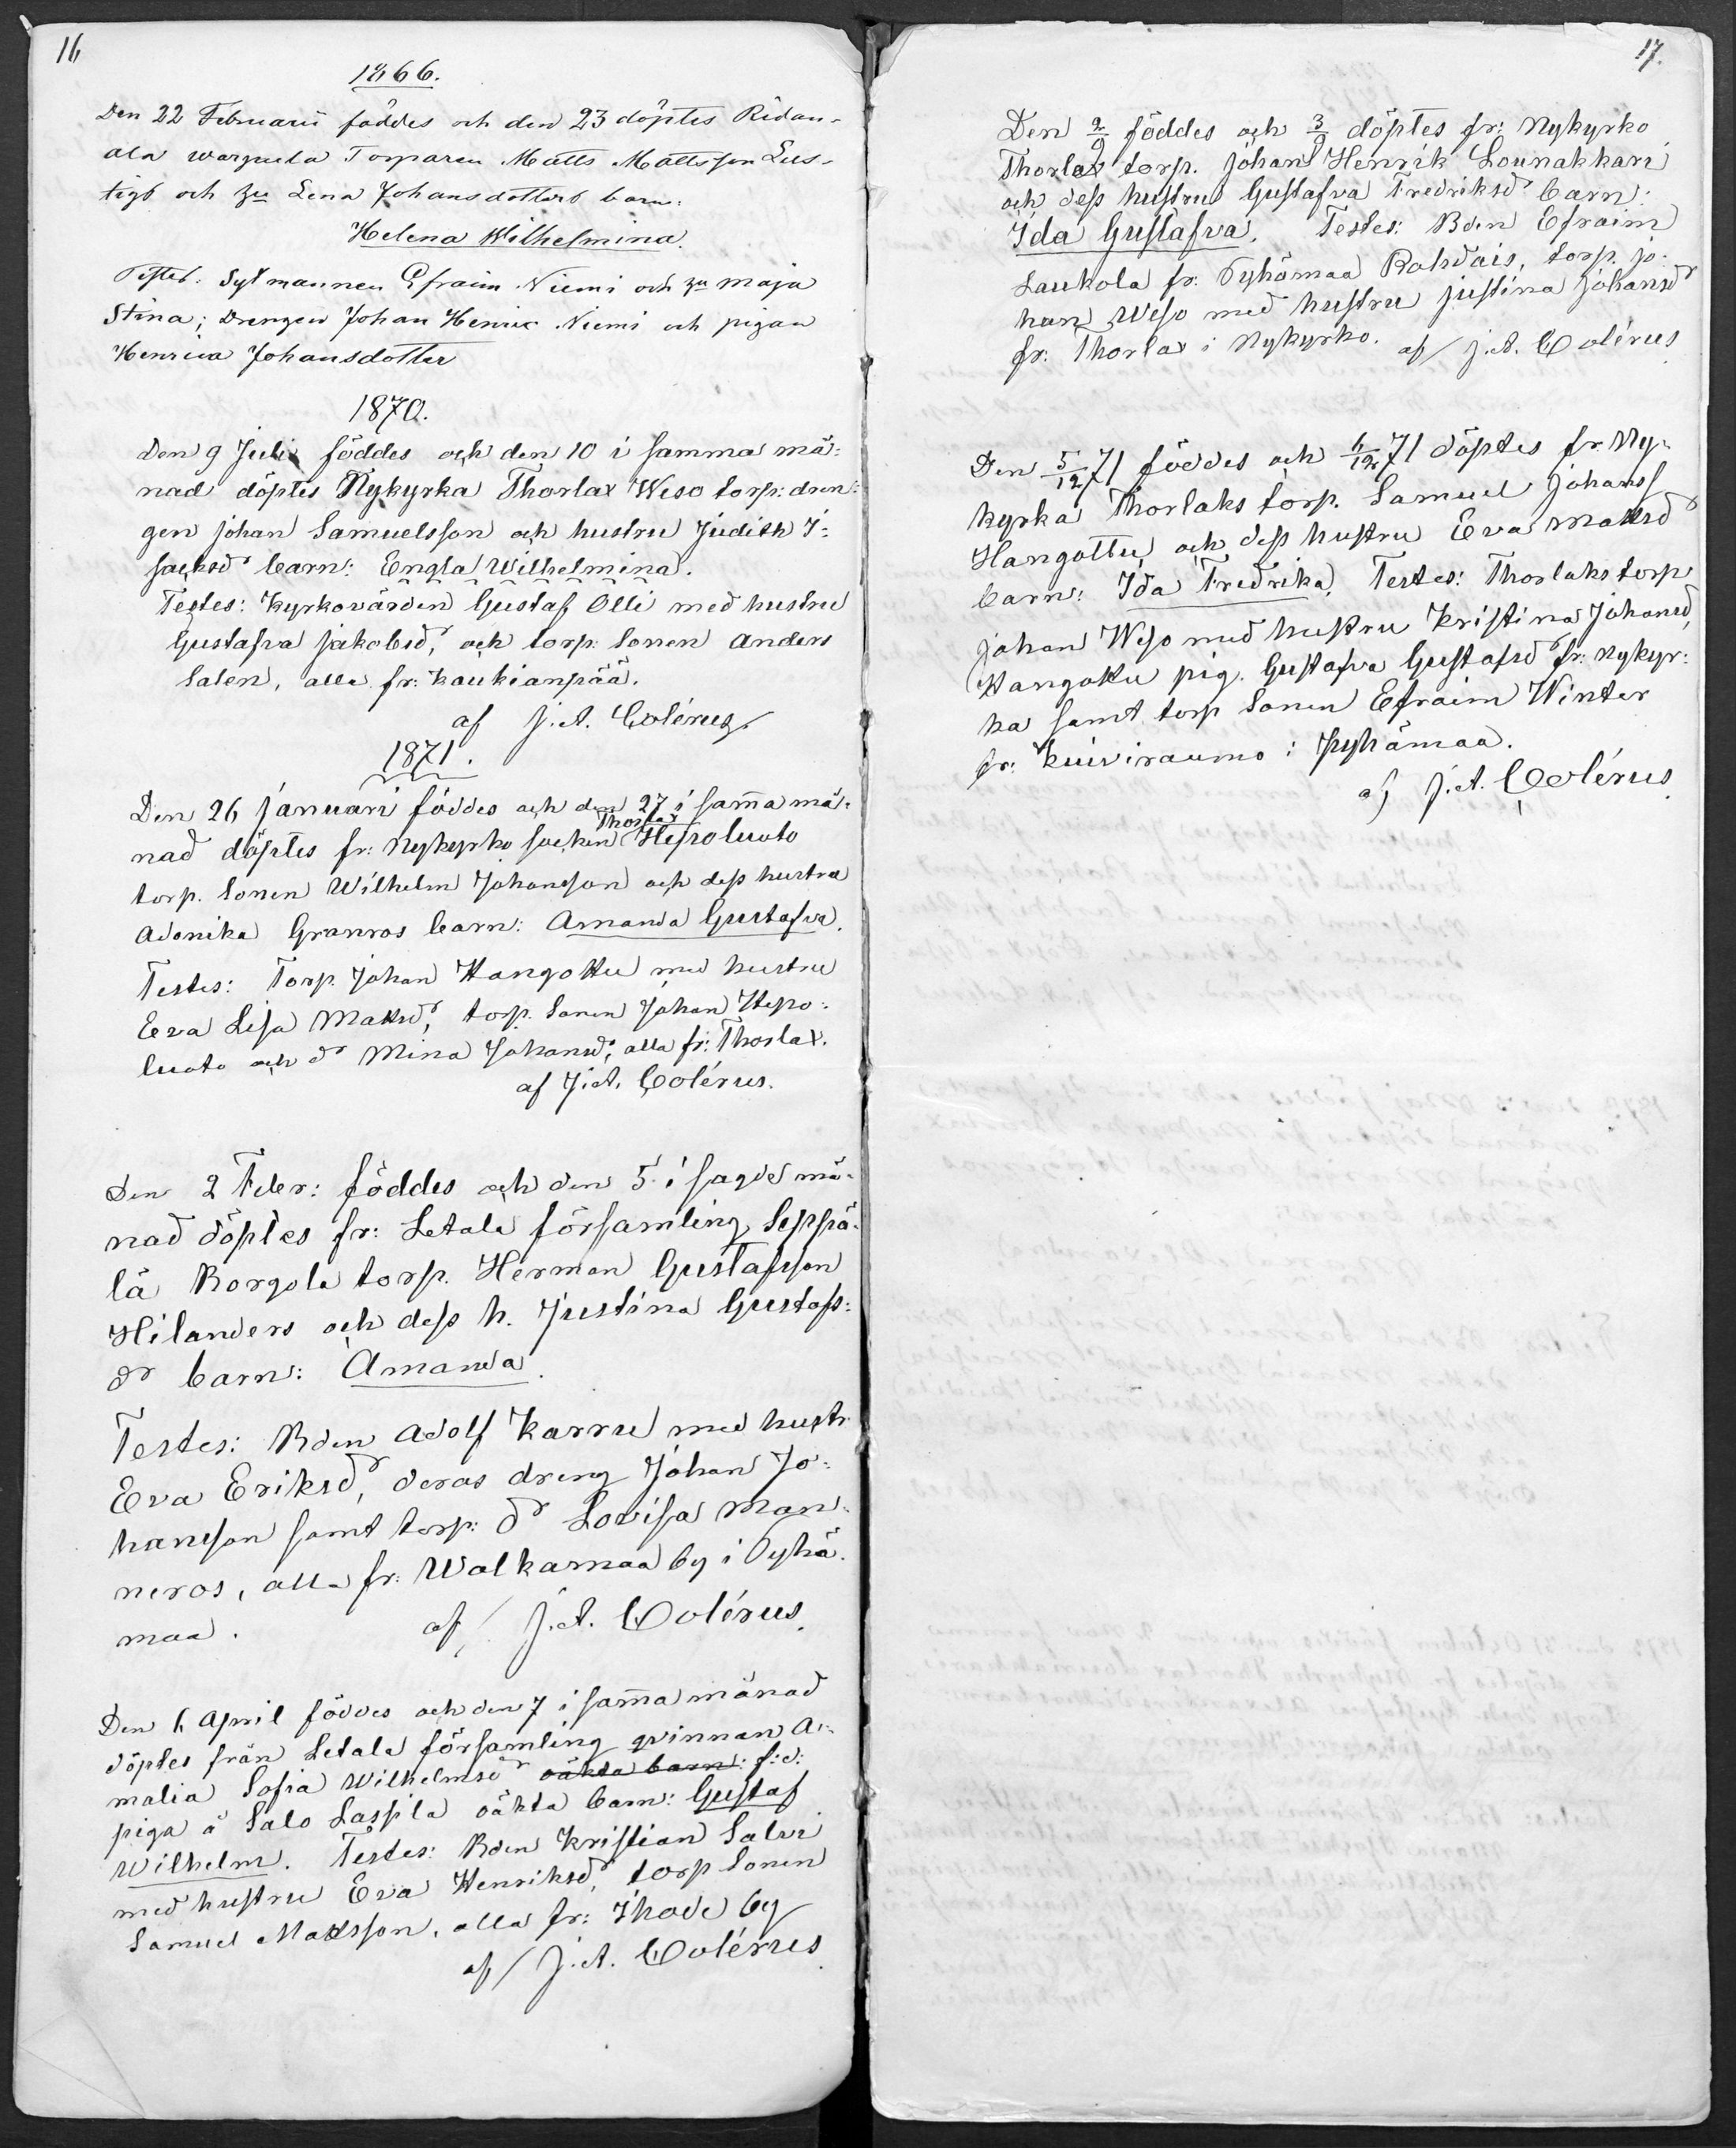 16
1866.
Den 22 Februarii föddes och den 23 döptes Ridan-
ala Torparen Matts Mattsson Lus-
tigs och Hu Lena Johansdotters barn:
Helena Wilhelmina.
Testes: Sytmannen Efraim Niemi och Hu Maja
Stina; Drengen Johan Henric Niemi och pigan
Henrica Johansdotter
1870.
Den 9 Juli föddes och den 10 i samma må-
nad döptes Nykyrka Thorlax Weso torp: dren-
gen Johan Samuelsson och hustru Judith I-
sacksdr barn: Engla Wilhelmina.
Testes: Kyrkovärden Gustaf Olli med hustru
Gustafva Jakobsdr, och torp. Sonen Anders
Salen, alla fr: Kaukianpää.
af J.A. Colérus
1871.
Den 26 Januari föddes och den 27 i sam̄a må-
nad döptes fr: Nykyrko socken Thorlax Heposluoto
torp. Sonen Wilhelm Johansson och dess hustru
Adonika Granros barn: Amanda Gustafva.
Testes: Torp. Johan Hangottu med hustru
Eva Lisa Mattsdr, torp. Sonen Johan Hepo-
luoto och dr Mina Johansdr, alla fr: Thorlax.
af J.A. Colérus.
Den 2 Febr: föddes och den 5 i sagde må-
nad döptes fr: Letala församling Seppä-
lä Borgola torp. Herman Gustafsson
Hilanders och dess h. Justina Gustafs-
dr barn: Amanda.
Testes: Bden Adolf Karru med hustr.
Eva Eriksdr, deras dreng Johan Jo-
hansson samt torp: dr Lovisa Man-
neros, alla fr: Walkamaa by i Pyhä-
maa. af J.A. Colérus.
Den 6 April föddes och den 7 i sam̄a månad
döptes från Letala församling qvinnan A-
malia Sofia Wilhelmsdr oäkta barn: f:d:
piga å Salo Lassila oäkta barn: Gustaf
Wilhelm. Testes: Bden Kristian Salvi
med hustru Eva Henriksdr, torp Sonen
Samuel Mattsson, alla fr: Ihode by
af J.A. Colérus.
17.
Den 2/9 föddes och 3/9 döptes fr: Nykyrko
Thorlax torp. Johan Henrik Lounakkari
och dess hustru Gustafva Fredriksdr barn:
Ida Gustafva. Testes: Bden Efraim
Laukola fr: Pyhämaa Rohdais, torp. Jo-
han Weso med hustru Justina Johansdr
fr: Thorlax i Nykyrko. af J.A. Colérus
Den 5/12 71 föddes och 6/12 71 döptes fr. Ny-
kyrka Thorlaks torp. Samuel Johanss
Hangottu och dess hustru Eva Mattsdr
barn: Ida Fredrika. Testes: Thorlaks torp
Johan Weso med hustru Kristina Johansd,
Hangottu pig. Gustafva Gustafsdr fr: Nykyr-
ka samt torp Sonen Efraim Winter
fr: Kuiviraumo i Pyhämaa.
af J.A. Colérus